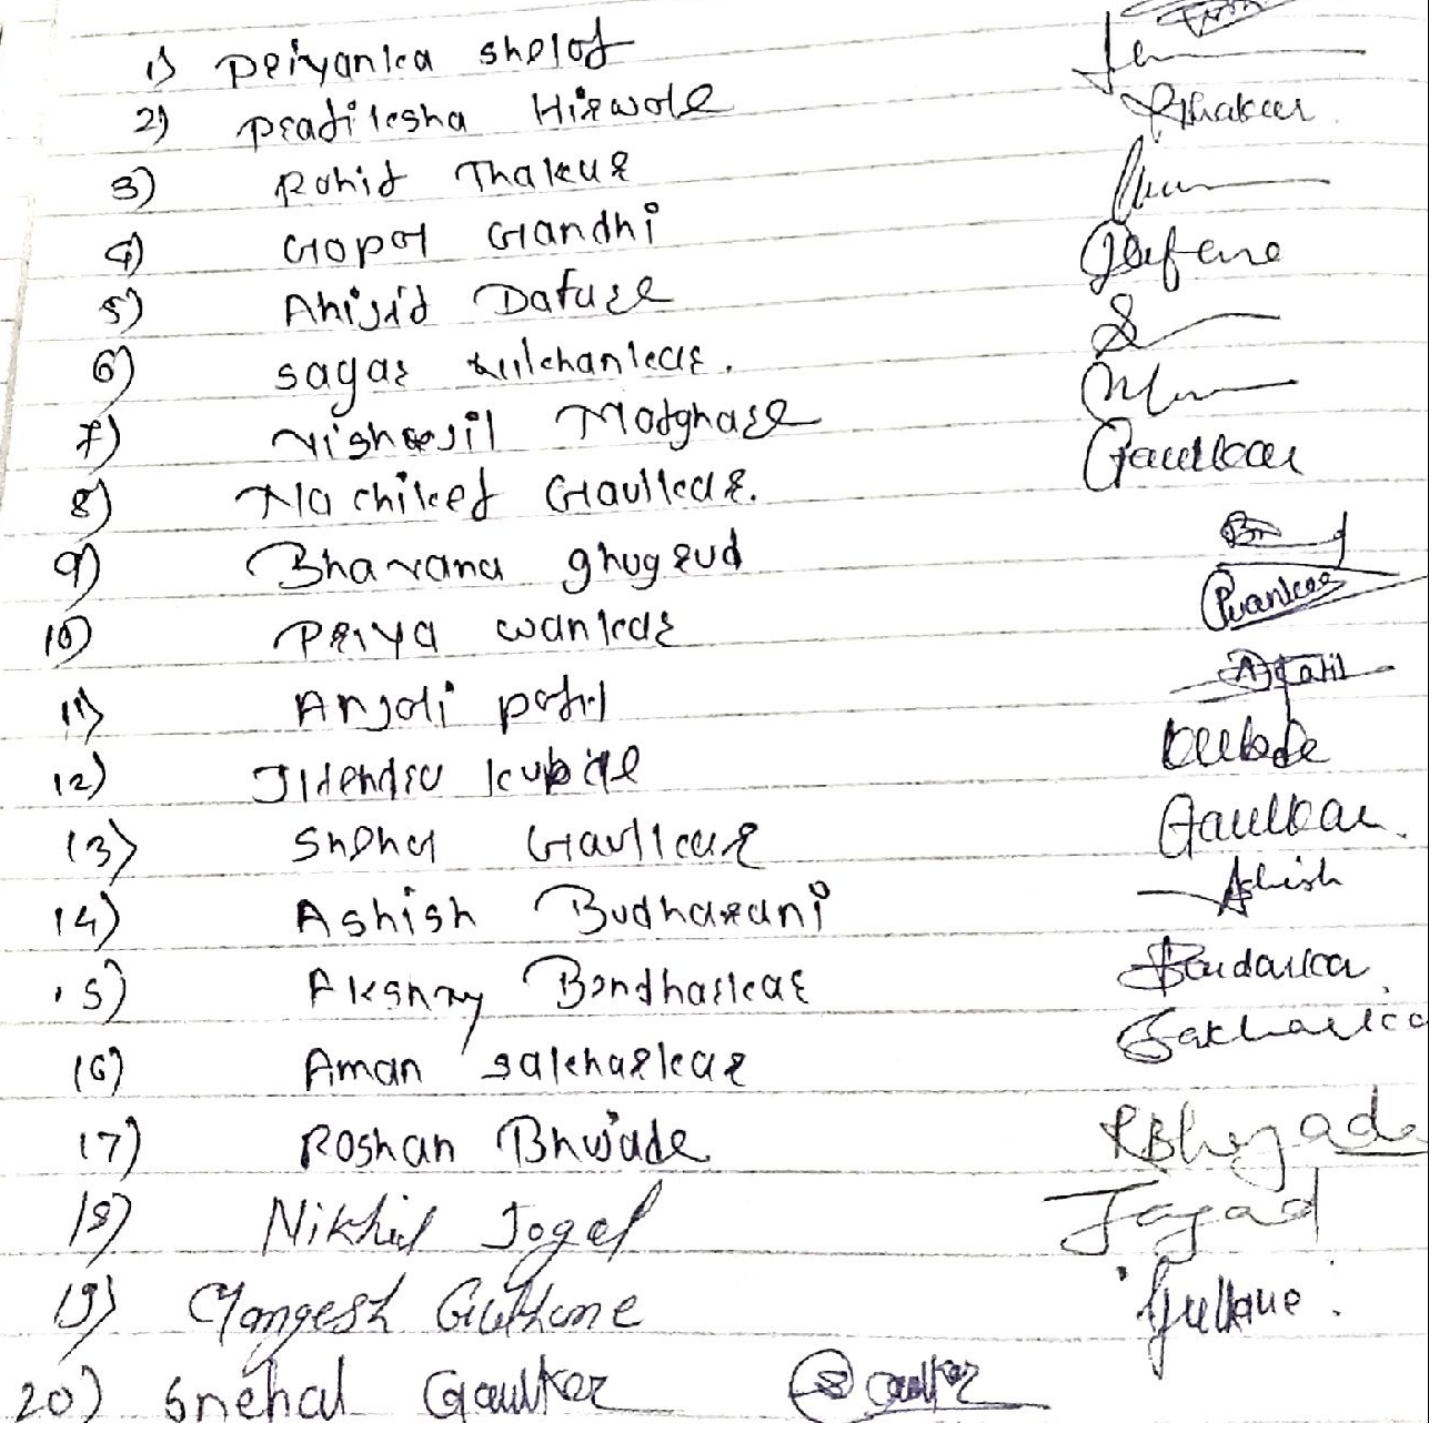 1) Priyanka shelot
2) Pratiksha Hirwole Thakur
3) Rohit Thakur
4) Gopal Gandhi Dafure
5) Ahijit Dafure
6) sagar kulchankar.
7) Matghare Gaulkar
8) Nachiket Gaulkar.
9) Bhavana ghugrud
10) Priya wankar Pwankar
11) Anjali patil APatil
12) Jitendra kubde kubde
13) Snehal Gaulkar Gaulkar.
14) Ashish Budharani Ashish
15) Akshay Bandharkar
16) Aman sakharkar Sakharkar
17) Roshan Bhujade RBhujade
18) Nikhil Jogal Jagad
19) Mangesh Gulhane Gulhane.
20) Snehal Gaulkar Gaulkar